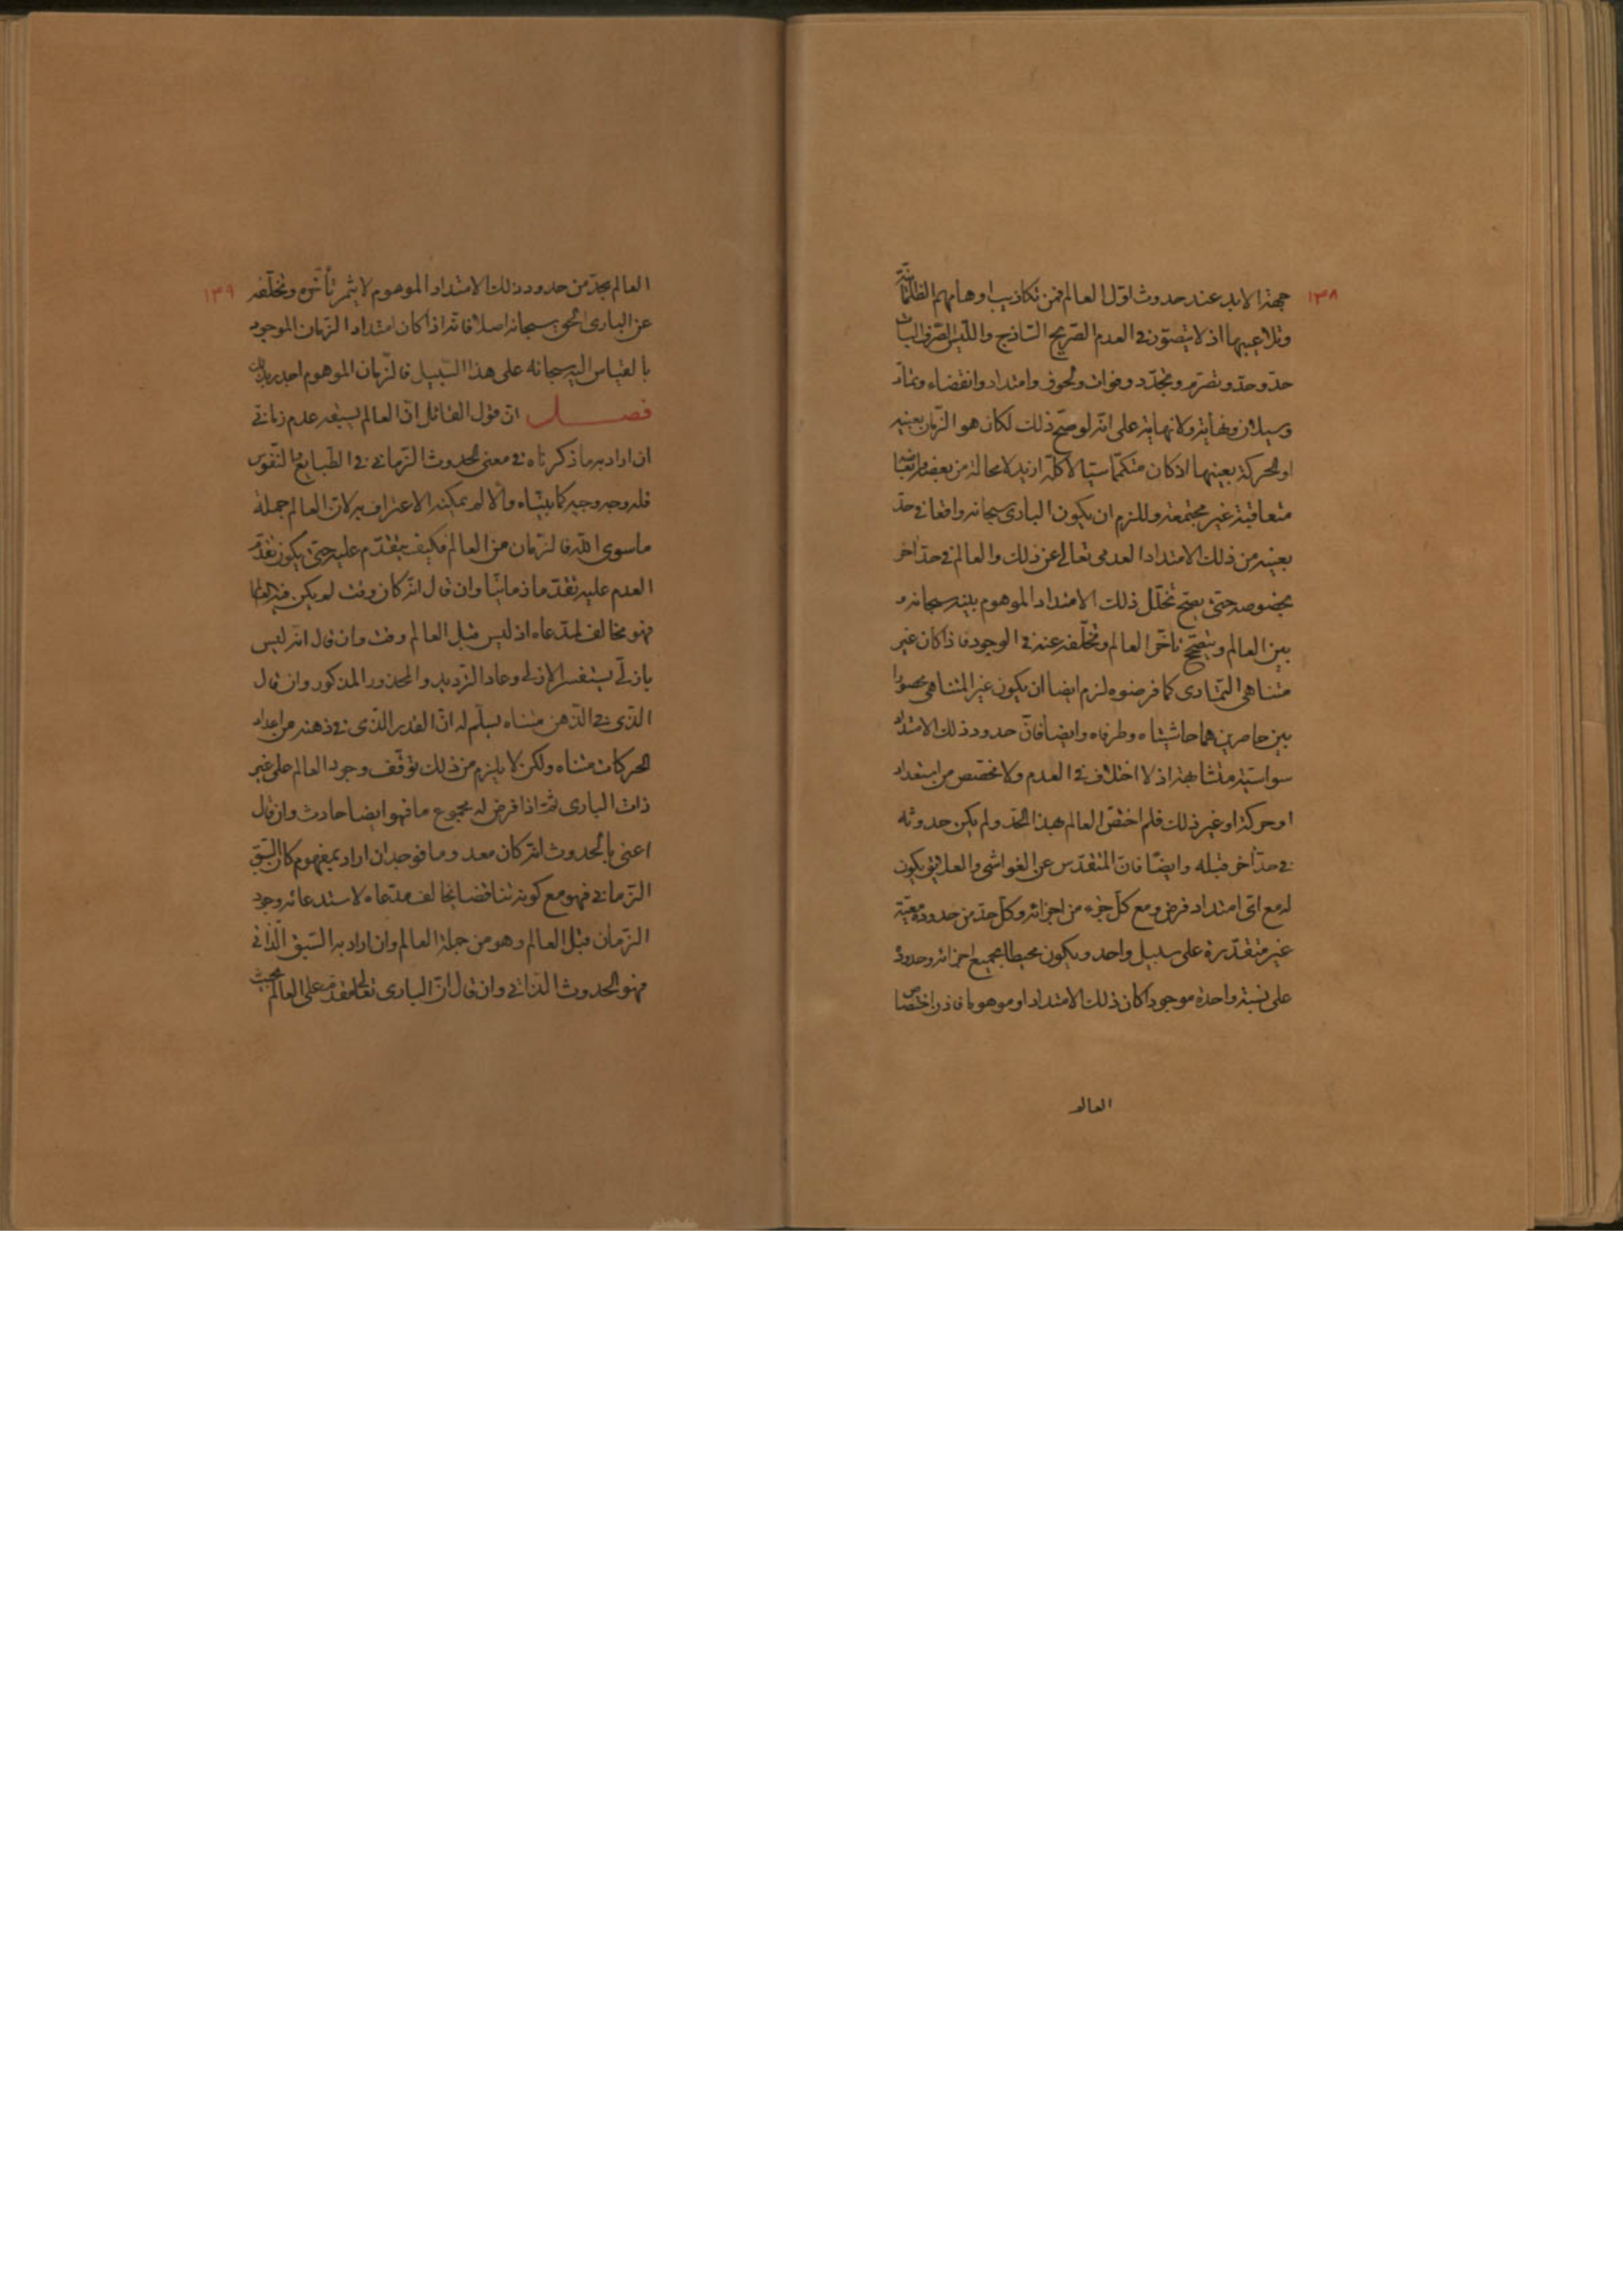 ١٣٨
جهة الابد عند حدوث اول العالم فمن تكاذيب اوهامهم الظلمانية
وتلاعيبها اذ لا يتصور في العدم الصريح الساذج والليس الصرف البات
حد وحد وتصرم وتجدد وفوات ولحوق وامتداد وانقضاء وتماد
وسيلان ونهاية ولا نهاية على انه لو صح ذلك لكان هو الزمان بعينه
او الحركة بعينها اذ كان متكمما سيالا كله ازيد لا محالة من بعضه وابعاضه
متعاقبة غير مجتمعة وللزم ان يكون الباري سبحانه واقعا في حد
بعينه من ذلك الامتداد العدمي تعالى عن ذلك والعالم في حد اخر
بخصوصه حتى يصح تخلل ذلك الامتداد الموهوم بينه سبحانه و
بين العالم ويتصحح تاخر العالم وتخلفه عنه في الوجود فاذا كان غير
متناهي التمادي كما فرضوه لزم ايضا ان يكون غير المتناهي محصورا
بين حاصرين هما حاشيتاه وطرفاه وايضا فان حدود ذلك الامتداد
سواسية متشابهة اذ لا اختلاف في العدم ولا مخصص من استعداد
او حركة او غير ذلك فلم اختص العالم بهذا الحد ولم يكن حدوثه
في حد اخر قبله وايضا فان المتقدس عن الغواشي والعلايق يكون
له مع اي امتداد فرض ومع كل جزء من اجزائه وكل حد من حدوده معية
غير متقدرة على سبيل واحد ويكون محيطا بجميع اجزائه وحدوده
على نسبة واحدة موجودا كان ذلك الامتداد او موهوما فاذن اختصاص
العالم
١٣٩
العالم بحد من حدود ذلك الامتداد الموهوم لا يثمر تأخره وتخلفه
عن الباري الحق سبحانه اصلا فانه اذا كان امتداد الزمان الموجود
بالقياس اليه سبحانه على هذا السبيل فالزمان الموهوم اجدر بذلك
فصل ان قول القائل ان العالم يسبقه عدم زماني
ان اراد به ما ذكرناه في معنى الحدوث الزماني في الطبايع والنفوس
فله وجه وجيه كما بيناه والا لم يمكنه الاعتراف به لان العالم جملة
ما سوى الله فالزمان من العالم فكيف يتقدم عليه حتى يكون تقدم
العدم عليه تقدما زمانيا وان قال انه كان وقت لم يكن فيه العالم
فهو مخالف لمدعاه اذ ليس قبل العالم وقت وان قال انه ليس
بازلي يستفسر الازلي وعاد الترديد والمحذور المذكور وان قال
الذي في الذهن متناه يسلم له ان القدر الذي في ذهنه من اعداد
الحركات متناه ولكن لا يلزم من ذلك توقف وجود العالم على غير
ذات الباري ثم اذا فرض له مجموع ما فهو ايضا حادث وان قال
اعني بالحدوث انه كان معدوما فوجد ان اراد بمفهوم كان السبق
الزماني فهو مع كونه تناقضا يخالف مدعاه لاستدعائه وجود
الزمان قبل العالم وهو من جملة العالم وان اراد به السبق الذاتي
فهو الحدوث الذاتي وان قال ان الباري تعالى مقدم على العالم بحيث